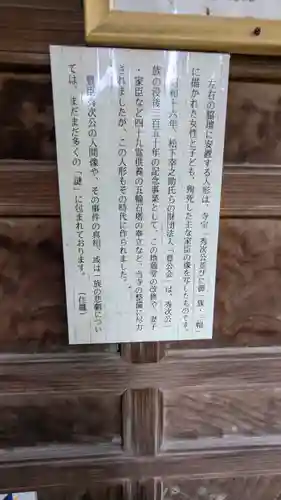 左右の脇壇に安置する人形は、寺宝「秀次公並びに御一族・三幅」
に描かれた女性と子ども、殉死した主な家臣の像を写したものです。
昭和十六年、松下幸之助氏らの財団法人「豊公会」は、秀次公一
族の没後三百五十年の記念事業として、この地蔵堂の改修や、妻子
・家臣など四十九霊供養の五輪石塔の奉立など、当寺の整備に尽力
されましたが、この人形もその時代に作られました。
豊臣秀次公の人間像や、その事件の真相、或は一族の悲劇につい
ては、まだまだ多くの「謎」に包まれております。
（住職）